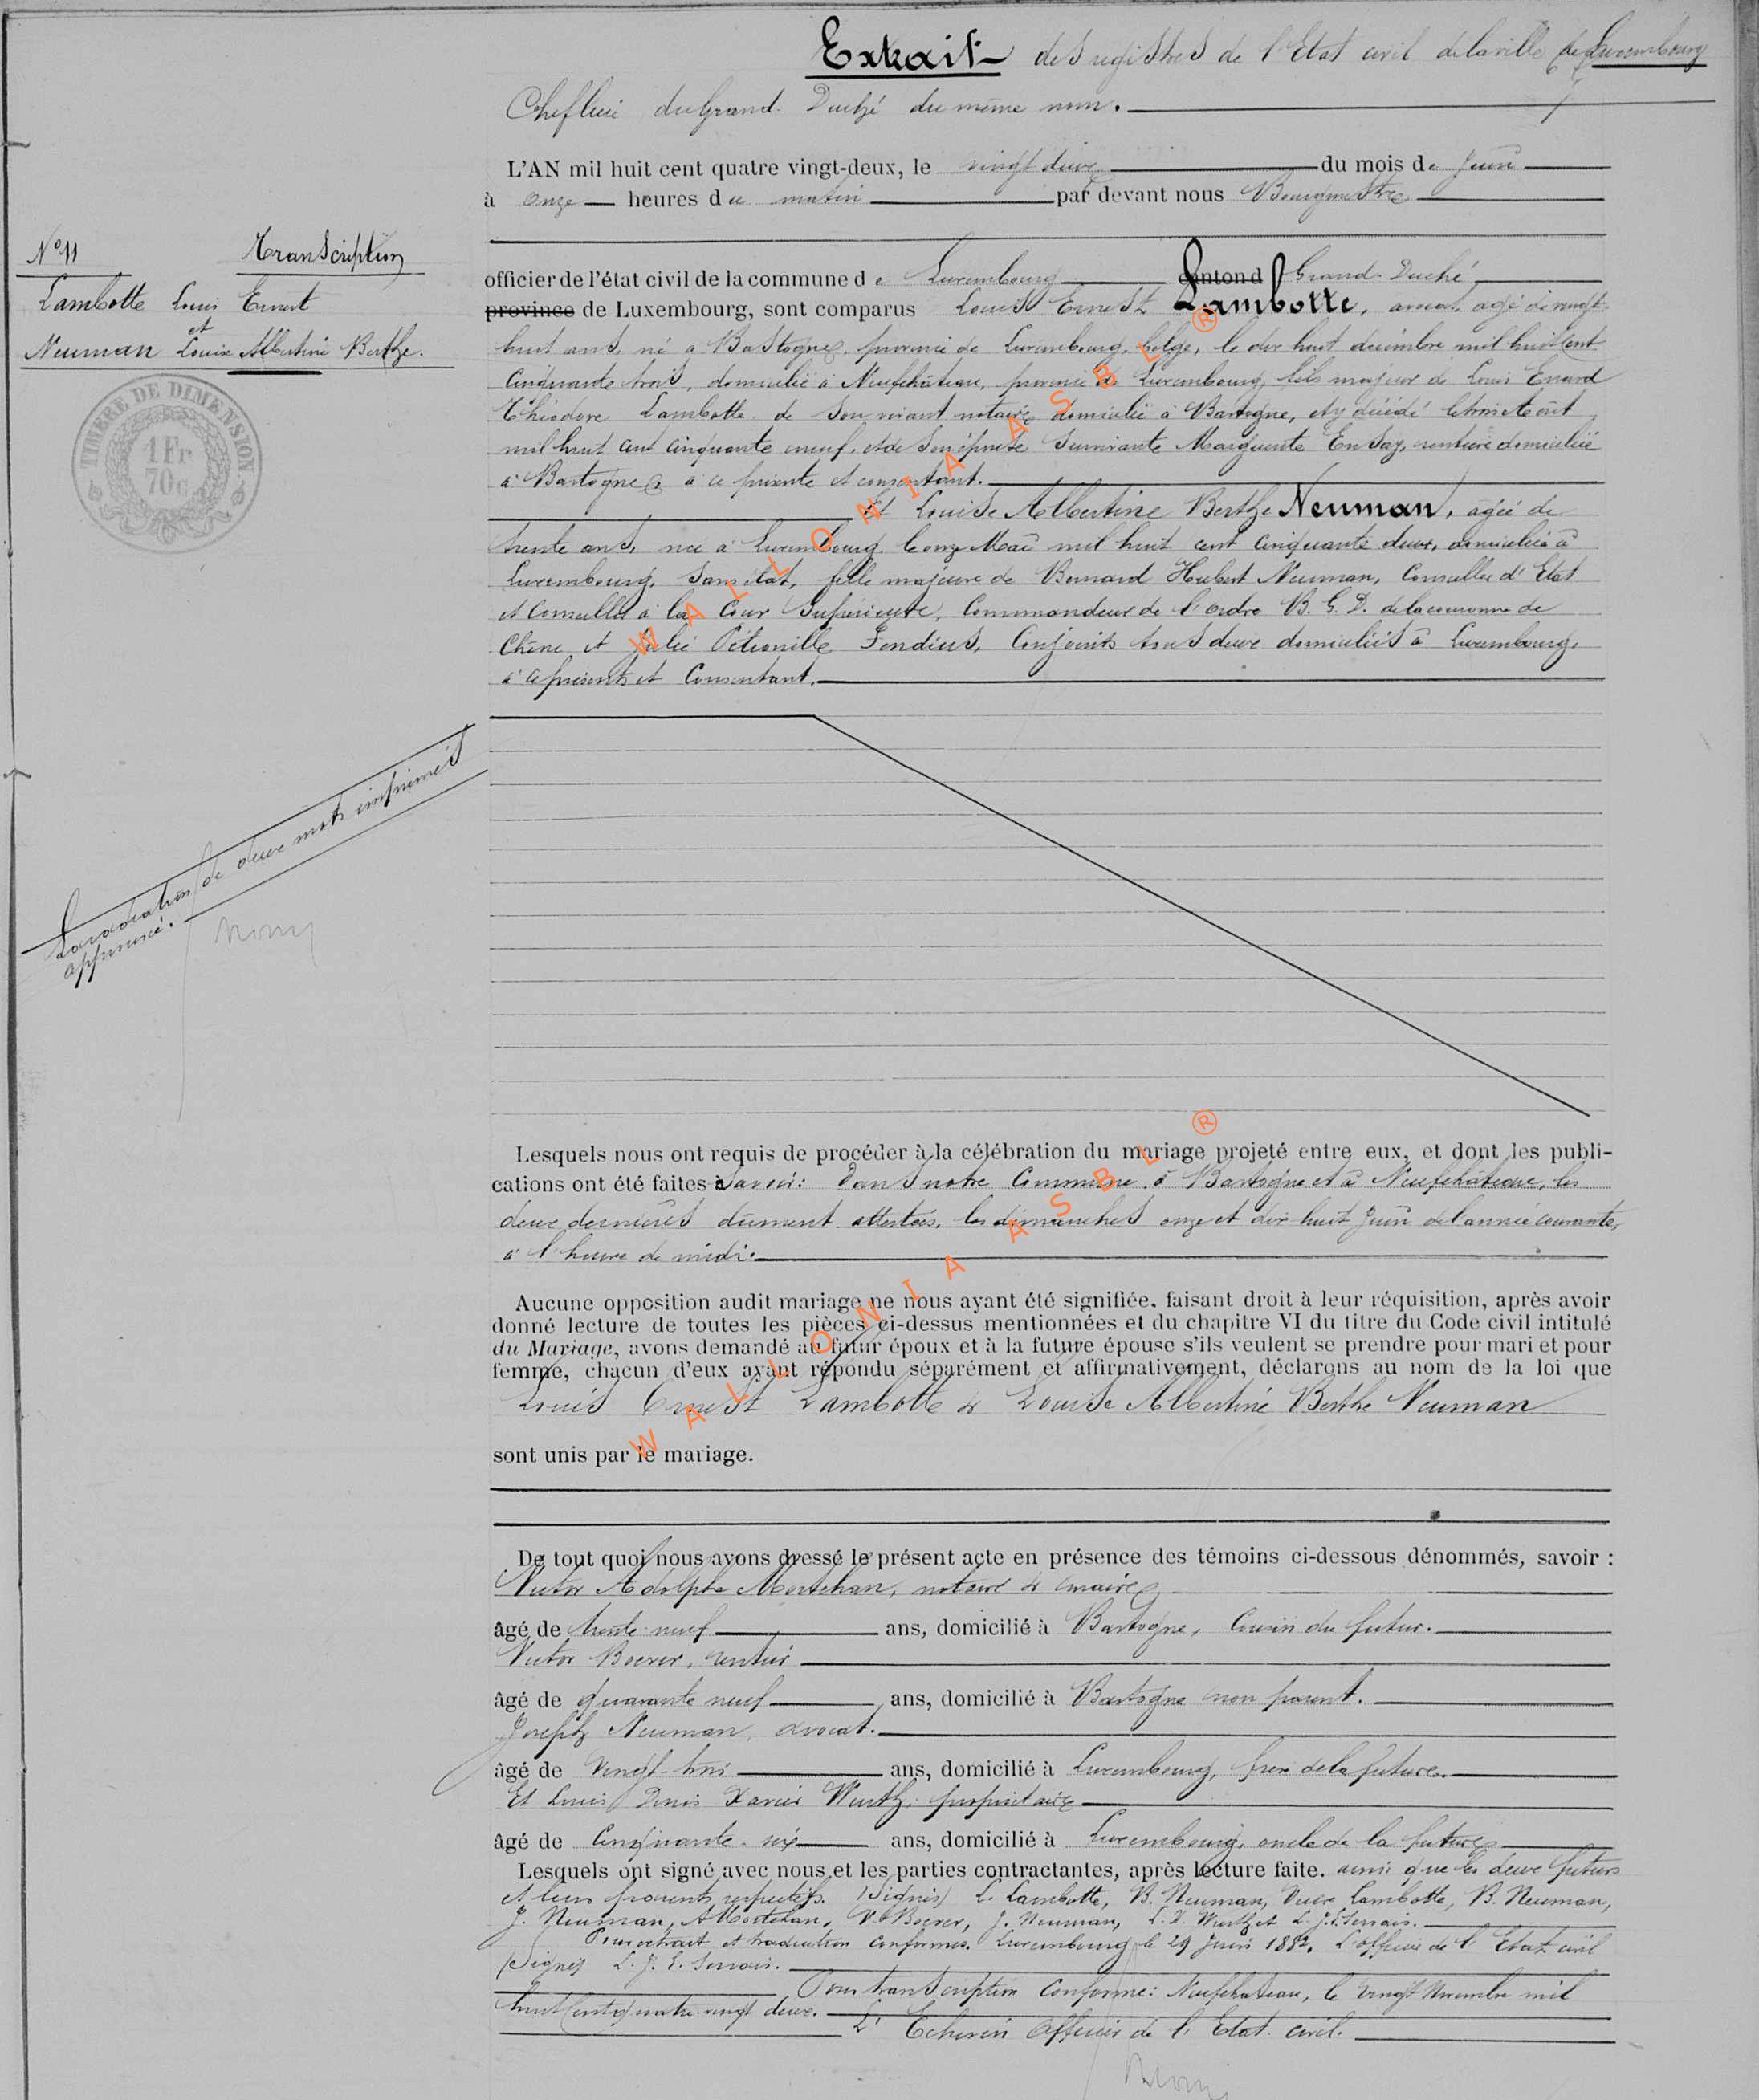 Extrait des registres de l'Etat civil de la ville de Luxembourg
Cheflieu du Grand-Duché du même nom.
L'AN mil huit cent quatre vingt-deux, le vingt deux du mois de Juin
à onze heures du matin par devant nous Bourgmestre
N° 11 Transcription
Lambotte Louis Ernest
et
Neuman Louise Albertine Berthe.
TIMBRE DE DIMENSION
1 Fr
70c
officier de l'état civil de la commune de Luxembourg canton d Grand-Duché
province de Luxembourg, sont comparus Louis Ernest Lambotte, avocat, agé de vingt
huit ans, né à Bastogne, province de Luxembourg, belge, le dix huit décembre mil huit cent
cinquante trois, domicilié à Neufchâteau, province de Luxembourg, fils majeur de Louis Evrard
Théodore Lambotte de son vivant notaire domicilié à Bastogne, et y décédé le trois Août
mil huit cent cinquante neuf, et de son épouse survivante Marguerite Ensay, rentière domiciliée
à Bastogne à ce présente et consentant.
Et Louise Albertine Berthe Neuman, agée de
trente ans, née à Luxembourg le onze Mai mil huit cent cinquante deux, domiciliée à
Luxembourg, sans état, fille majeure de Bernard Hubert Neuman, Conseiller d'Etat
et Conseiller à la Cour Supérieure, Commandeur de l'ordre R. G. D. de la couronne de
Chêne et Julie Pétronille Fendius, Conjoints tous deux domiciliés à Luxembourg,
à ce présents et Consentant.
La radiation de deux mots imprimés
approuvée.
Lesquels nous ont requis de procéder à la célébration du mariage projeté entre eux, et dont les publi-
cations ont été faites à savoir: Dans notre Commune, à Bastogne et à Neufchâteau, les
deux dernières dûment attestées, les dimanches onze et dix huit Juin de l'année courante,
à l'heure de midi.
Aucune opposition audit mariage ne nous ayant été signifiée, faisant droit à leur réquisition, après avoir
donné lecture de toutes les pièces ci-dessus mentionnées et du chapitre VI du titre du Code civil intitulé
du Mariage, avons demandé au futur époux et à la future épouse s'ils veulent se prendre pour mari et pour
femme, chacun d'eux ayant répondu séparément et affirmativement, déclarons au nom de la loi que
Louis Ernest Lambotte & Louise Albertine Berthe Neuman
sont unis par le mariage.
De tout quoi nous avons dressé le présent acte en présence des témoins ci-dessous dénommés, savoir :
Victor Adolphe Mortehan, notaire & maire,
âgé de trente neuf ans, domicilié à Bastogne, Cousin du futur.
Victor Boever, rentier
âgé de quarante neuf ans, domicilié à Bastogne non parent.
Joseph Neuman, avocat.
âgé de vingt-trois ans, domicilié à Luxembourg, frère de la future.
Et Louis Denis Xavier Wurth, propriétaire
âgé de Cinquante-six ans, domicilié à Luxembourg, oncle de la future
Lesquels ont signé avec nous et les parties contractantes, après lecture faite. ainsi que les deux futurs
et leurs parents respectifs. (Signés) L. Lambotte, B. Neuman, Veuve Lambotte, B. Neuman,
J. Neuman, A Mortehan, V. Boever, J. Neuman, L. X. Wurth et L. J. E. Servais.
Pour extrait et traduction conformes. Luxembourg le 29 Juin 1882. L'officier de l'Etat civil
(Signé) L. J. E. Servais.
Pour transcription Conforme: Neufchateau, le vingt Novembre mil
huit cent quatre vingt deux.
L'Echevin Officier de l'Etat civil.
WALLONIA ASBL ®
WALLONIA ASBL ®